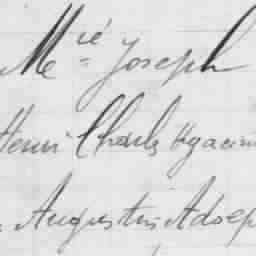 M.ié Joseph
Henri Charles Hyacin
Augustin Adolp